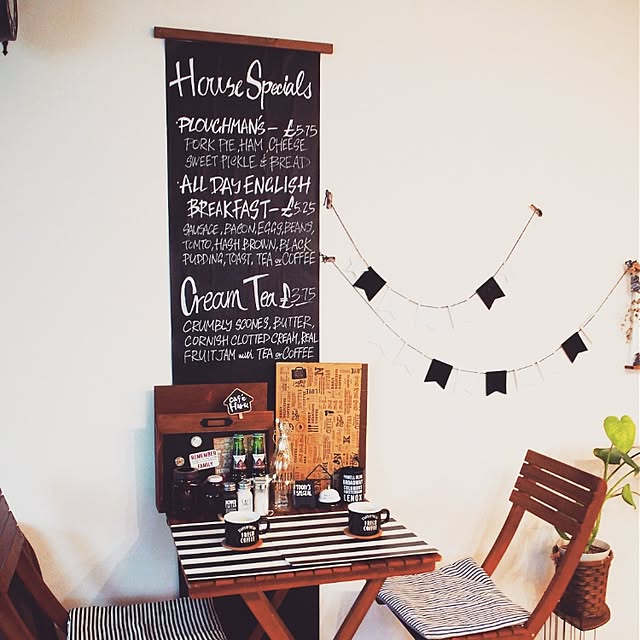 House Specials
·PLOUGHMAN'S — £5.75
PORK PIE, HAM, CHEESE
SWEET PICKLE & BREAD
·ALL DAY ENGLISH
BREAKFAST — £5.25
SAUSAGE, BACON, EGGS, BEANS,
TOMTO, HASH BROWN, BLACK
PUDDING, TOAST, TEA or COFFEE
Cream Tea £3.75
CRUMBLY SCONES, BUTTER,
CORNISH CLOTTED CREAM, REAL
FRUIT JAM with TEA or COFFEE
cafe
Haru
REMEMBER
FAMILY
TODAY'S
SPECIAL
SALT
BROADWAY
LENOX
FRESH
COFFEE
FRESH
COFFEE